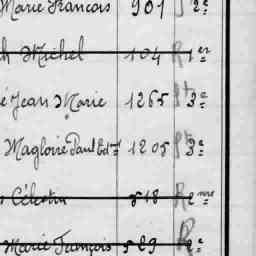 Marie Francois 901 2e
Michel 104 R 1er
Jean Marie 1265 St 3e
Magloire Paul Edmd 1205 St 3e
Célestin 518 R 2me
Marie François 529 R 2e